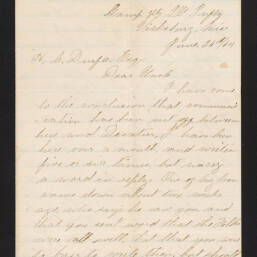 Camp 76 Ill Infty
Vicksburg, Miss
June 26/64
Dear Uncle
I have come
to the conclusion that communi
cation has been cut off between
here and Decatur, I have been
here over a month and written
five or six times but nary
a word in reply. One of the boys
came down about two weeks
ago who says he saw you and
that you sent word that the folks
were all well, but that you were